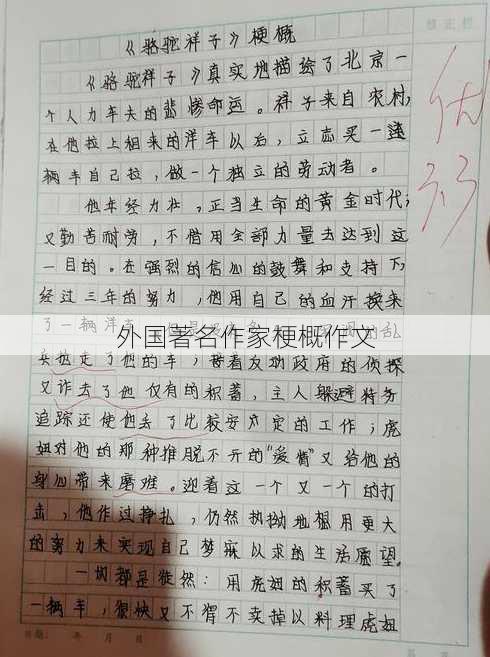 《骆驼祥子》梗概
《骆驼祥子》真实地描绘了北京一
个人力车夫的悲惨命运。祥子来自农村,
在他拉上租来的洋车以后,立志买一
辆车自己拉,做一个独立的劳动者。
他年轻力壮,正当生命的黄金时代;
又勤苦耐劳,不惜用全部力量去达到这
一目的。在强烈的信心的鼓舞和支持下,
经过三年的努力,他用自己的血汗换来
了一辆洋车
的乱
外国著名作家梗概作文
兵拉走了他的车;接着反动政府的侦探
又诈去了他仅有的积蓄,主人躲避特务
追踪还使他丢了比较安定的工作;虎
妞对他的那种推脱不开的“爱情”又给他的
身心带来磨难。迎着这一个又一个的打
击,他作过挣扎,仍然执拗地想用更大
的努力来实现自己梦寐以求的生活愿望。
一切都是徒然:用虎妞的积蓄买了
一辆车,很快又不得不卖掉以料理虎妞
年 月 日
优